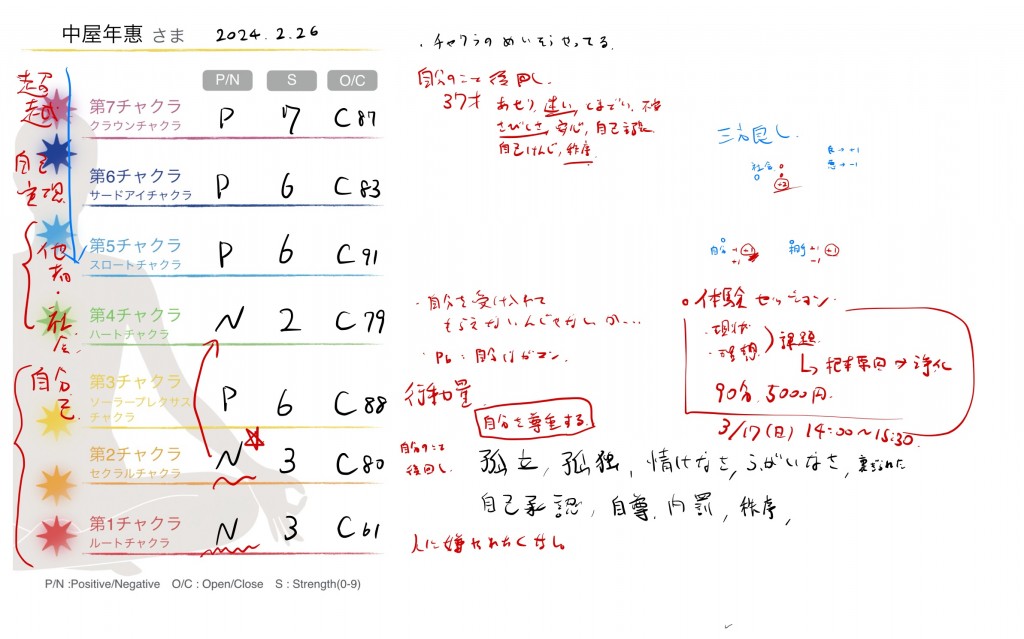 中屋年惠 さま 2024.2.26
P/N S O/C
第7チャクラ
クラウンチャクラ
P 7 C87
第6チャクラ
サードアイチャクラ
P 6 C83
第5チャクラ
スロートチャクラ
P 6 C91
第4チャクラ
ハートチャクラ
N 2 C79
第3チャクラ
ソーラープレクサス
チャクラ
P 6 C88
第2チャクラ
セクラルチャクラ
N 3 C80
第1チャクラ
ルートチャクラ
N 3 C61
P/N :Positive/Negative O/C : Open/Close S : Strength(0-9)
超越
自己
実現
他者・社会
自分
己
・チャクラのめいそうやってる.
自分のこと後回し.
37才 あせり, 迷い, とまどい,
さびしさ, 安心, 自己
自己けんじ, 秩序
三方良し.
良→+1
悪→-1
社会
+2
自分 +1 +1
-1
相手 +1 +1
-1
・自分を受け入れて
もらえないんじゃないか…
・Pb: 自分はガマン.
行動量
自分を尊重する.
自分のこと
後回し.
孤立, 孤独, 情けなさ, ふがいなさ,
自己承認, 自尊, 内罰, 秩序,
人に嫌われたくない.
○体験セッション.
・現状
・理想
課題
→ 根本原因→浄化
90分. 5000円.
3/17(日) 14:00~15:30.